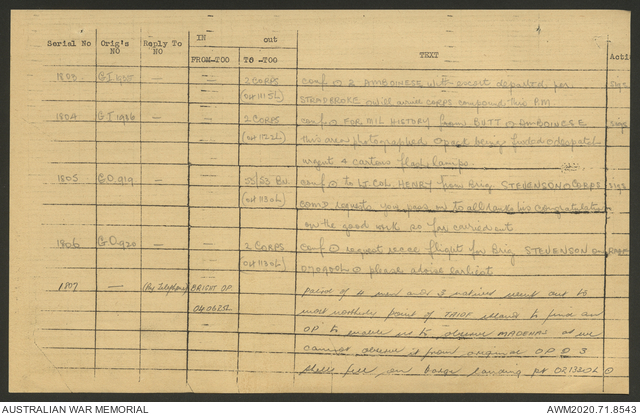 Serial No Orig's NO Reply To NO IN out TEXT Acti
FROM-TOO TO-TOO
1803 G.I. — — 2 CORPS conf ⊙ 2 AMBOINESE with escort departed per
STRADBROKE ⊙ will CORPS compound this P.M.
1804 G I 1986 — — 2 CORPS conf ⊙ FOR MIL HISTORY from BUTT ⊙ AMBOINESE
this area photographed ⊙ being despatch
urgent 4 cartons flash lamps.
1805 G.O. 919 — — 55/53 Bn. conf ⊙ to Lt. Col. HENRY from Brig STEVENSON ⊙ CORPS
(041130L) comd requests you pass on to all ranks his congratulation
on the good work so far carried out
1806 G.O. 920 — — 2 CORPS conf ⊙ request recce flight for Brig STEVENSON
(041130L) ⊙ please advise earliest
1807 — (By Telephone) BRIGHT O.P. — patrol of 4 men and 3 natives went out to
040625L most northern point of TAIOF island to find an
OP to enable us to observe MADEHAS as we
cannot observe it from original OP ⊙ 3
shells fell on barge landing pt 021320L ⊙
AUSTRALIAN WAR MEMORIAL AWM2020.71.8543